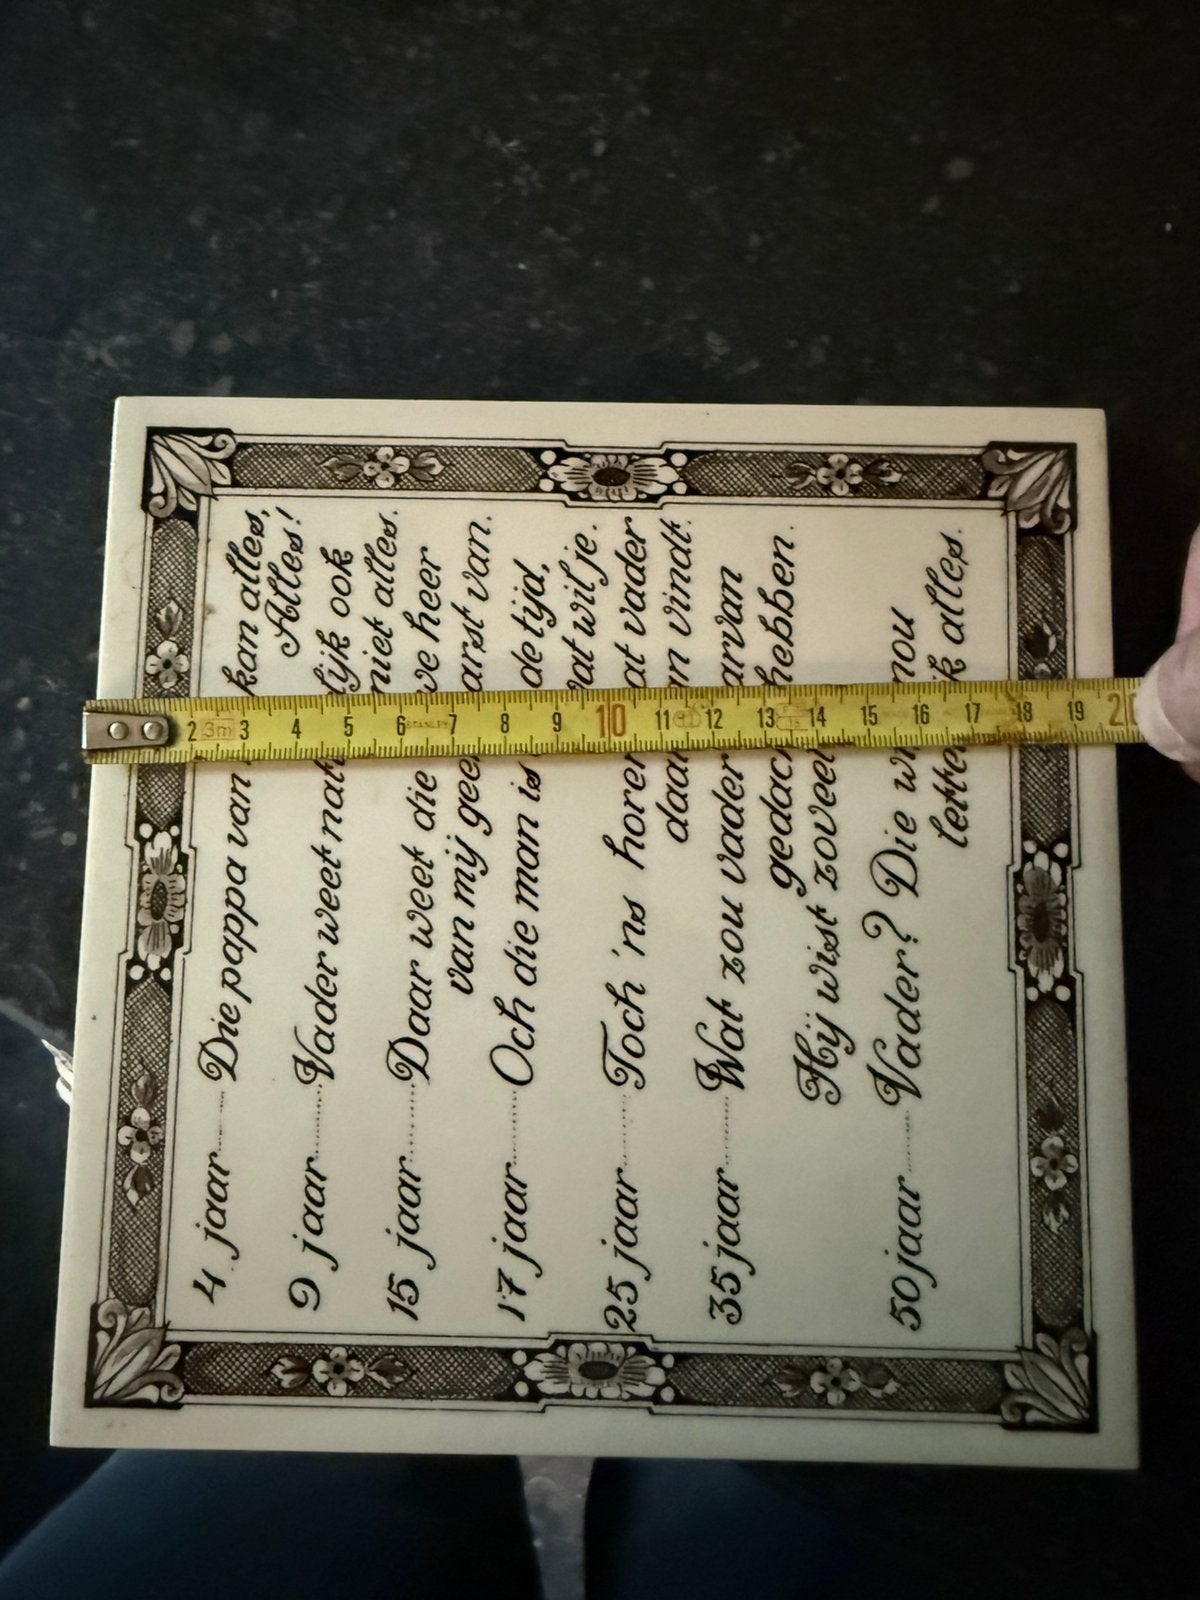 4 jaar......Die pappa van kan alles,
Alles!
9 jaar......Vader weet nat ijk ook
niet alles.
15 jaar......Daar weet die we heer
van mij gee arst van.
17 jaar......Och die man is de tijd,
wat wil je.
25 jaar......Toch 'ns horen at vader
daar an vindt.
35 jaar......Wat zou vader arvan
gedach hebben.
Hij wist zoveel
50 jaar......Vader? Die wi nou
letter jk alles.
2 3m 3 4 5 6 STANLEY 7 8 9 10 11 12 13 14 15 16 17 18 19 20